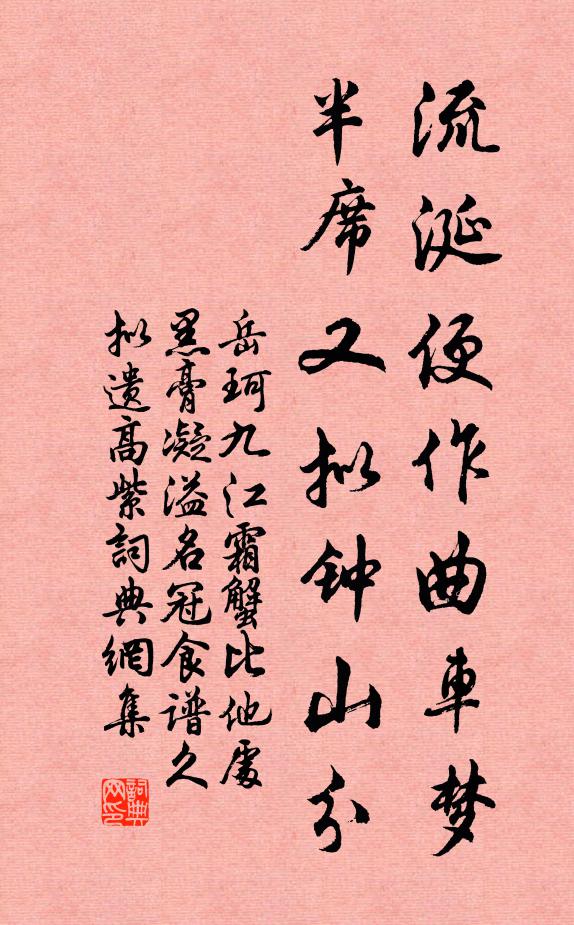 流涎便作曲車梦
半席又拟钟山分
岳珂九江霜蟹比他處
黑膏凝溢名冠食谱久
拟遗高紫詞典網集
詞典网印